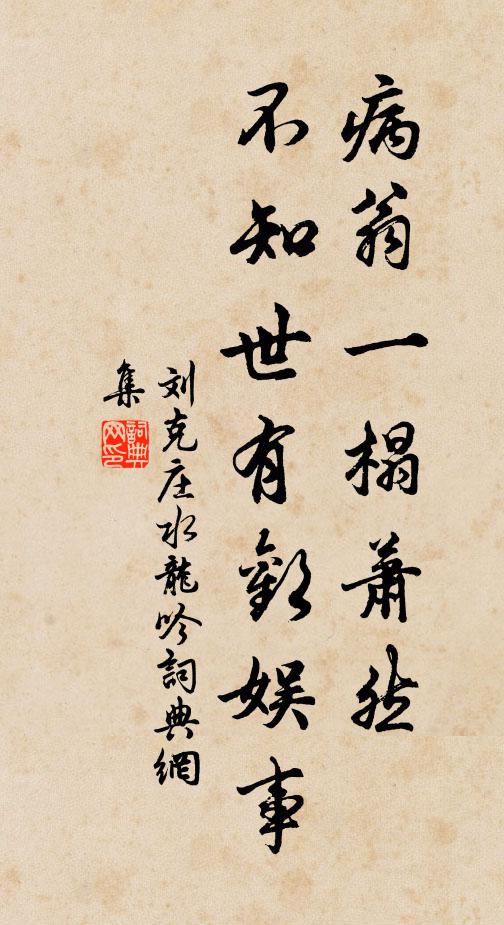 病翁一榻萧然
不知世有歡娱事
刘克庄水龍吟詞典網
集
詞典
网印